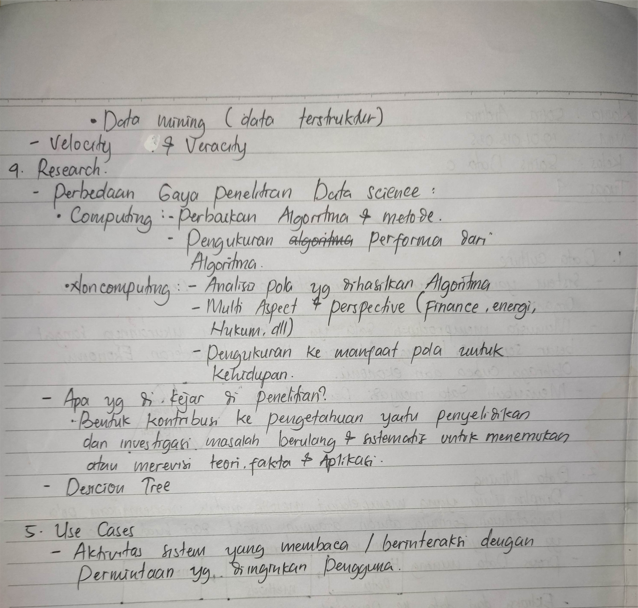 • Data mining (data terstruktur)
- Velocity & Veracity
4. Research.
- Perbedaan Gaya penelitian Data science :
• Computing : - Perbaikan Algoritma & metode.
- Pengukuran algoritma performa dari
Algoritma.
• Non computing : - Analisa pola yg dihasilkan Algoritma
- Multi Aspect & perspective (Finance, energi,
Hukum, dll)
- Pengukuran ke manfaat pola untuk
Kehidupan.
- Apa yg di kejar di penelitian?
• Bentuk kontribusi ke pengetahuan yaitu penyelidikan
dan investigasi masalah berulang & sistematis untuk menemukan
atau merevisi teori, fakta & Aplikasi.
- Descion Tree
5. Use Cases
- Aktivitas sistem yang membaca / berinteraksi dengan
Permintaan yg diinginkan Pengguna.